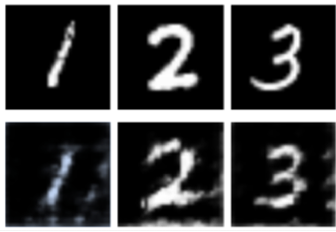 1 2 3
1 2 3